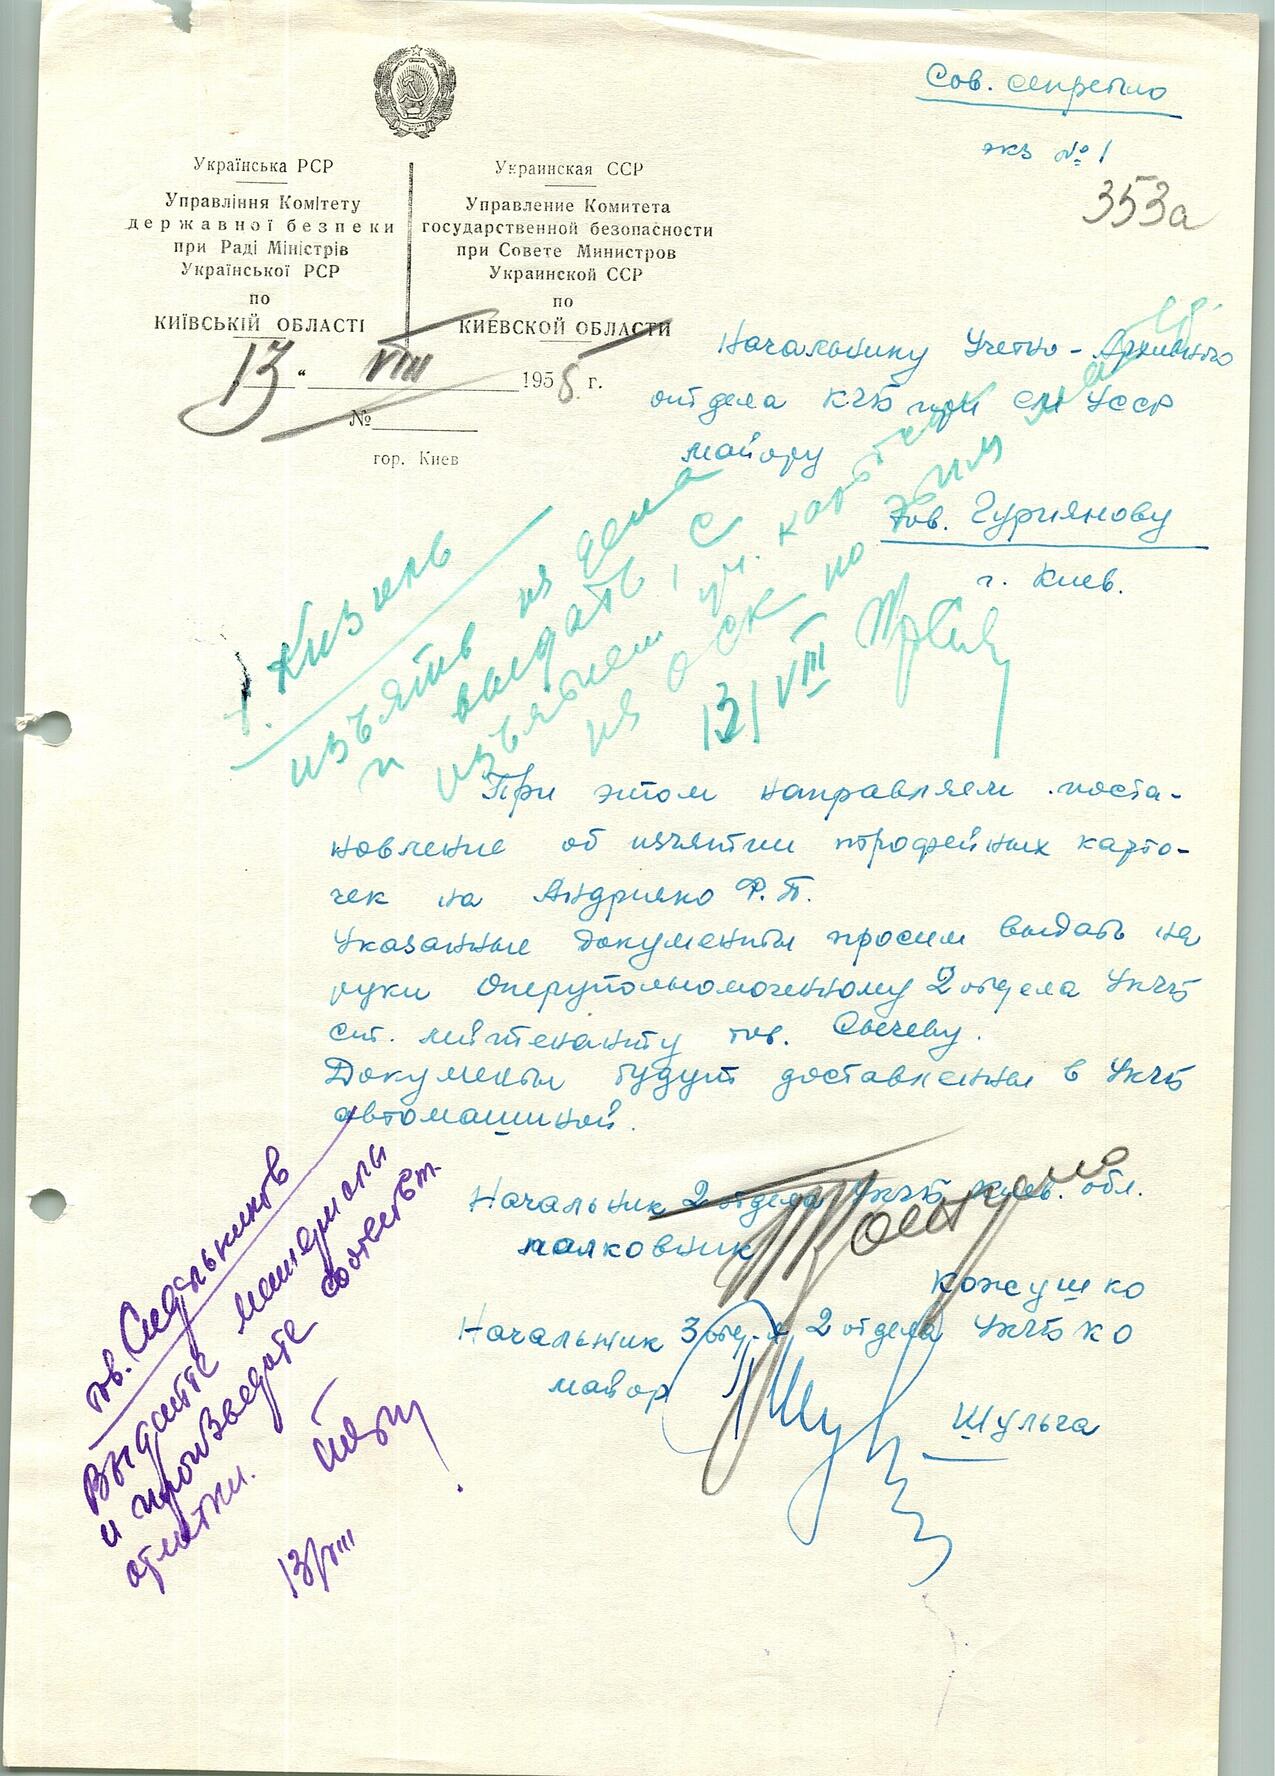 Сов. секретно
экз № 1
353а
Українська РСР
Управління Комітету
державної безпеки
при Раді Міністрів
Української РСР
по
КИЇВСЬКІЙ ОБЛАСТІ
Украинская ССР
Управление Комитета
государственной безопасности
при Совете Министров
Украинской ССР
по
КИЕВСКОЙ ОБЛАСТИ
13 " VIII 1955 г.
№
гор. Киев
Начальнику Учетно-Архивного
отдела КГБ при СМ УССР
майору
тов. Гуриянову
г. Киев.
т. Кизиль
изъятив из дела
и выдать, с
изъятием уч. карточек
из ОСК по этим
13/VIII
При этом направляем поста-
новление об изъятии трофейных карто-
чек на Андрияко Ф.П.
Указанные документы просим выдать на
руки Оперуполномоченному 2 отдела УКГБ
ст. лейтенанту тов. Сычеву.
Документы будут доставлены в УКГБ
автомашиной.
Начальник 2 отдела УКГБ Киев. обл.
полковник
Кожушко
Начальник 3 отд-я 2 отдела УКГБ КО
майор
Шульга
тов. Сидельников
Выдайте материалы
и произведите соответств.
отметки.
13/VIII